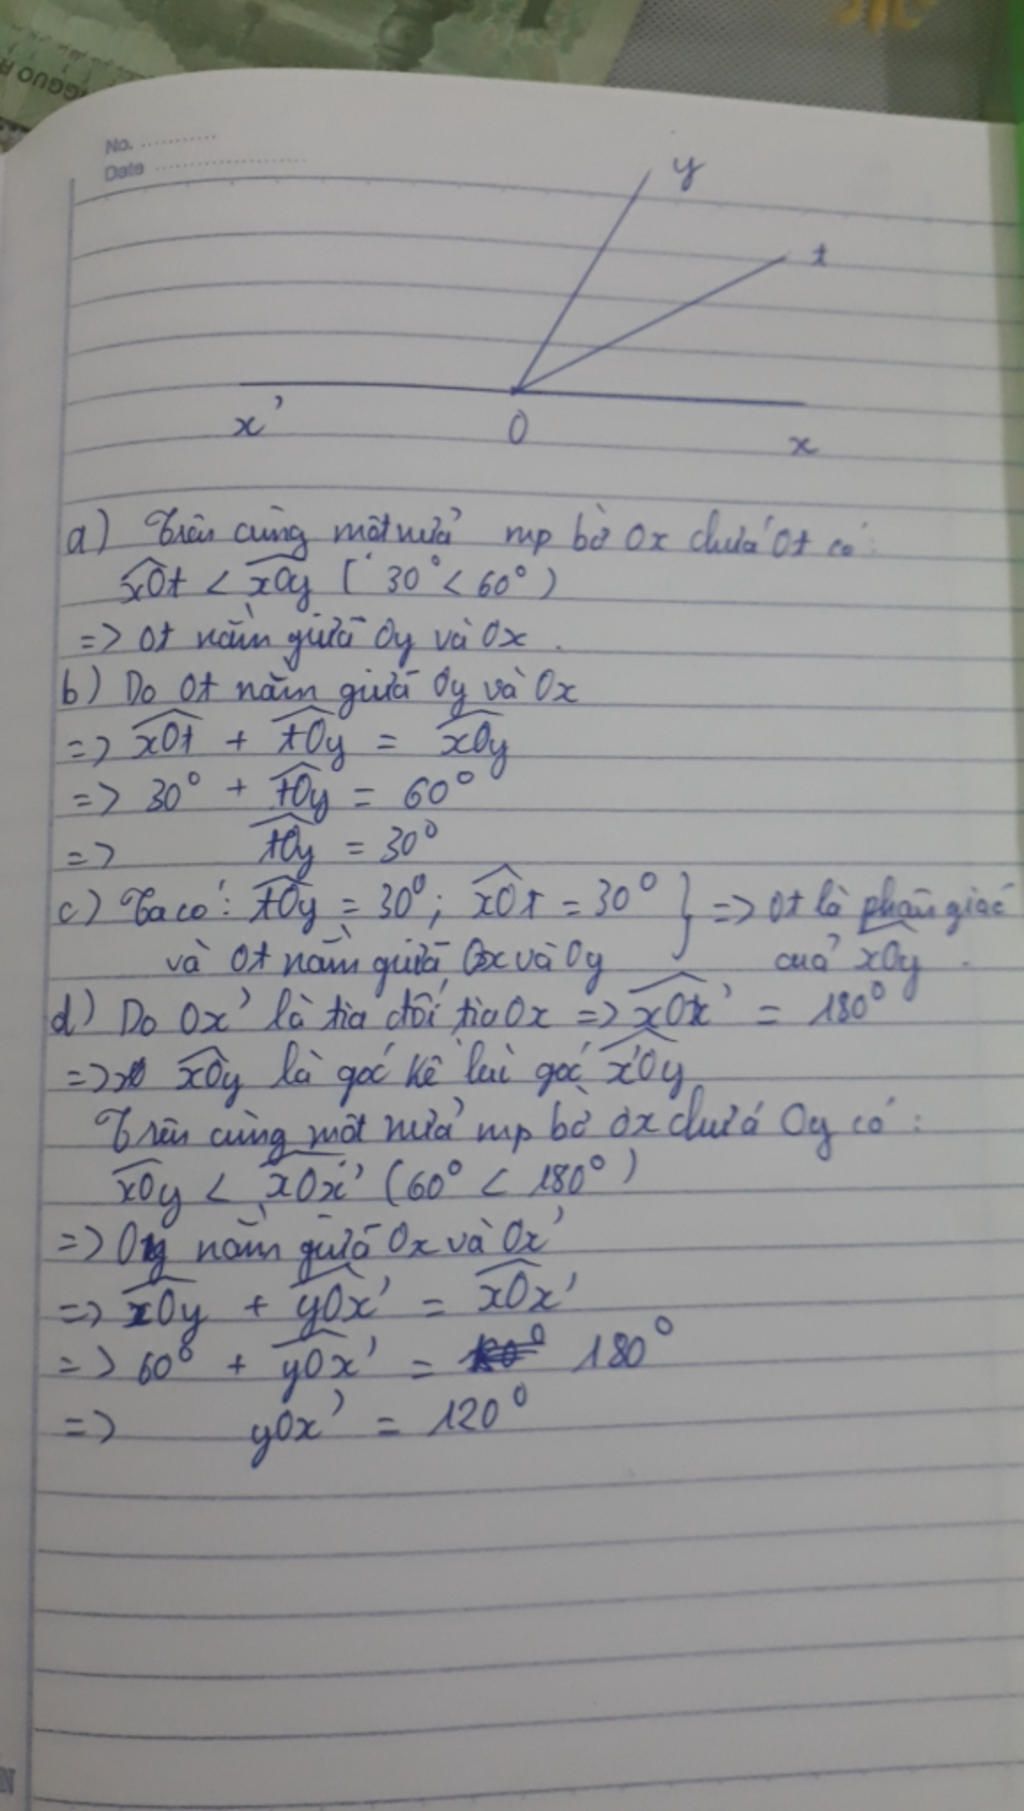 NGGUO R
No. ............
Date ........................
y
t
x'
O
x
a) Trên cùng một nửa mp bờ Ox chứa Ot có:
xOt < xOy ( 30° < 60° )
=> Ot nằm giữa Oy và Ox.
b) Do Ot nằm giữa Oy và Ox
=> xOt + tOy = xOy
=> 30° + tOy = 60°
=> tOy = 30°
c) Ta có: tOy = 30°; xOt = 30° } => Ot là phân giác
và Ot nằm giữa Ox và Oy của xOy.
d) Do Ox' là tia đối tia Ox => xOx' = 180°
=> xOy là góc kề bù góc x'Oy
Trên cùng một nửa mp bờ Ox chứa Oy có:
xOy < xOx' (60° < 180°)
=> Oy nằm giữa Ox và Ox'
=> xOy + yOx' = xOx'
=> 60° + yOx' = 180°
=> yOx' = 120°